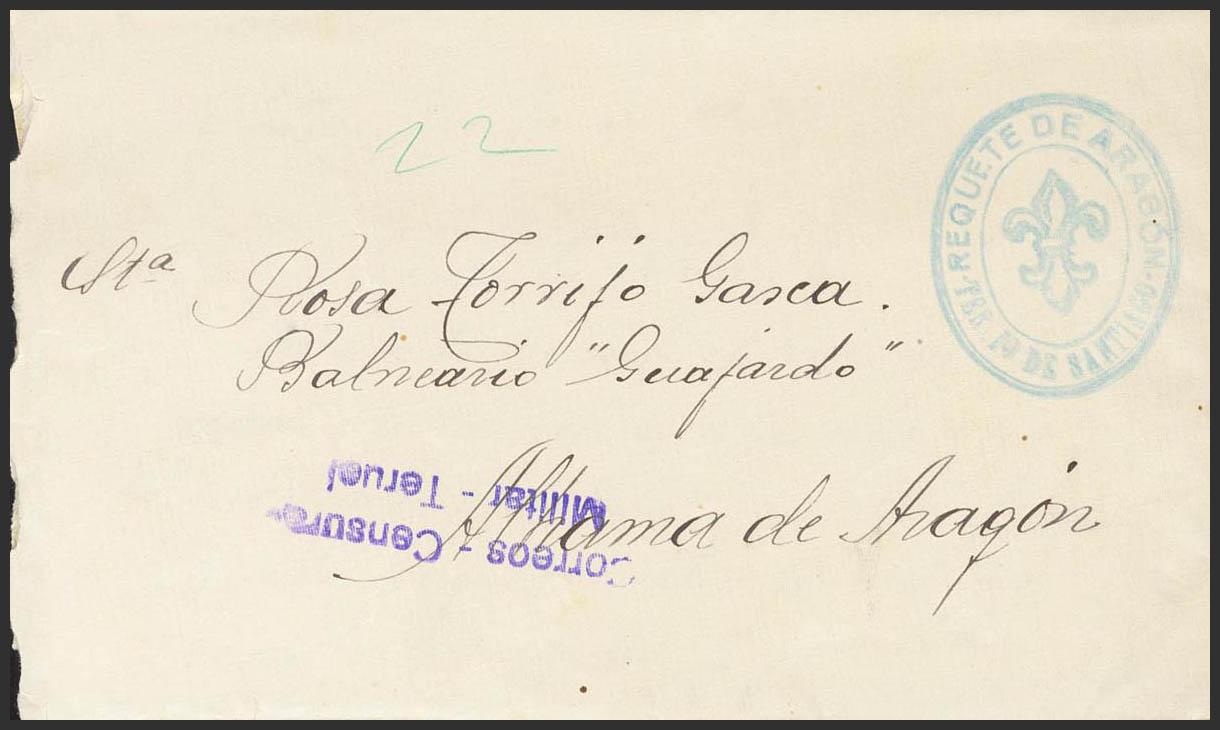 22
REQUETE DE ARAGÓN.
DE SANTIAGO
Sta Rosa Torrijo Gasca.
Balneario "Guajardo"
Alhama de Aragón
Correos - Censura
Militar - Teruel